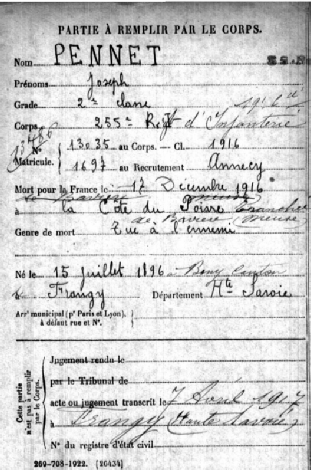 PARTIE À REMPLIR PAR LE CORPS.
Nom PENNET
Prénoms Joseph
Grade 2e classe 1916
Corps 255e Regt d'Infanterie
N° 13035 au Corps. — Cl. 1916
Matricule. 1697 au Recrutement Annecy
Mort pour la France le 17 Décembre 1916
à la Côte du Poivre
Meuse
Genre de mort Tué à l'ennemi
Né le 15 juillet 1896
à Frangy Département Hte Savoie
Arrt municipal (pr Paris et Lyon),
à défaut rue et N°.
Cette partie
n'est pas à remplir
par le Corps.
Jugement rendu le
par le Tribunal de
acte ou jugement transcrit le 7 Avril 1917
à Frangy Haute Savoie
N° du registre d'état civil
269-708-1922. [26434]